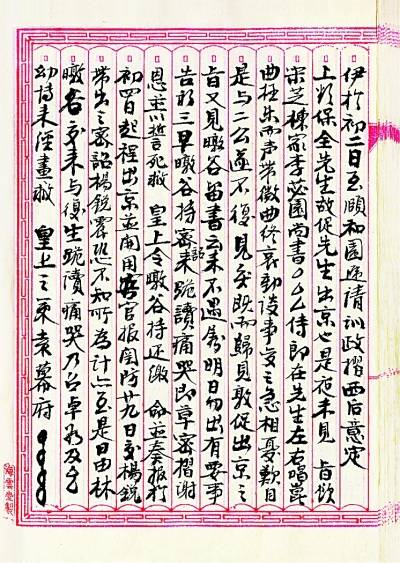 伊於初二日至頤和園遞請訓政摺西后意定
上欲保全先生故促先生出京也是夜未見旨飲
宋芝棟家李苾園尚書侍郎在先生左右唱崑
曲極樂而聲帶徵曲終哀動談事變之急相憂歎目
是與二公遂不復見矣既而歸見敦促出京之
旨又見暾谷留書云來不遇屬明日勿出有要事
告初三早暾谷持密詔來跪讀痛哭即草密摺謝
恩並誓死救 皇上令暾谷持還繳命並奏報于
初四日起程出京並開用官報關防廿九日交楊銳
帶出之密詔楊銳震恐不知所為計六至是日由林
暾谷交來與復生跪讀痛哭乃召卓如及
幼博來經畫救 皇上之策袁幕府
海雲堂製